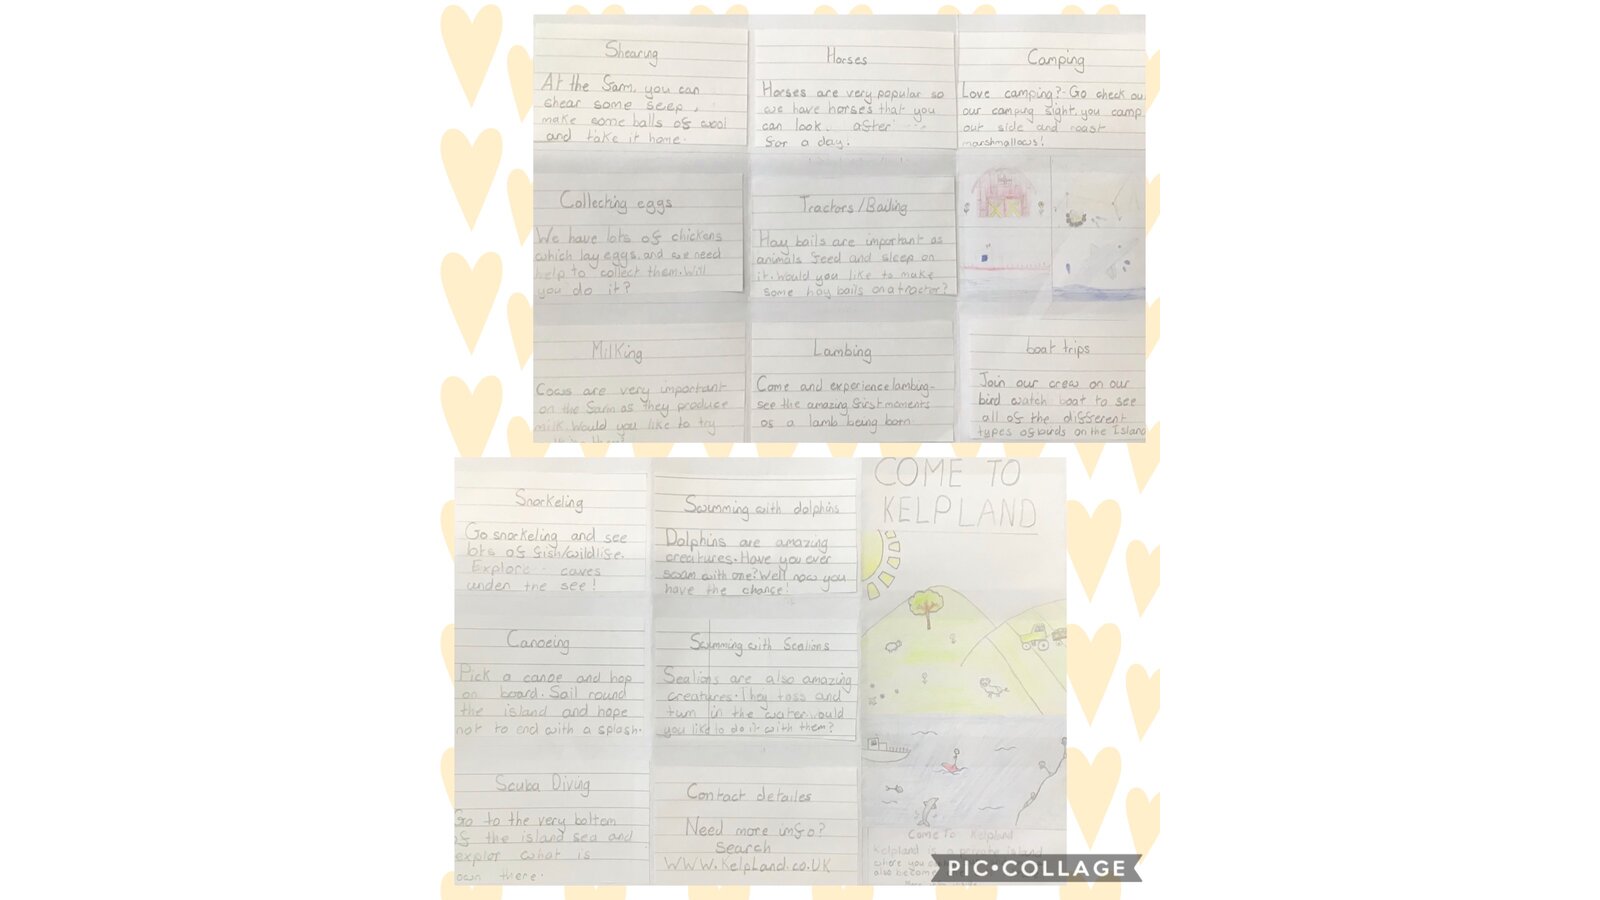 Shearing
At the Sarm, you can
shear some seep,
make some balls of wool
and take it home.
Horses
Horses are very popular so
we have horses that you
can look after
for a day.
Camping
Love camping?-Go check ou
our campug sight, you camp
out side and roast
marshmallows!
Collecting eggs
We have lots of chickens
which lay eggs. and we need
help to collect them. Will
you do it?
Tractors/Bailing
Hay bails are important as
animals feed and sleep on
it. Would you like to make
some hay bails on a tractor?
Milking
Cows are very important
on the Sarm as they produce
milk. Would you like to try
Lambing
Come and experience lambing-
see the amazing first moments
of a lamb being born.
boat trips
Join our crew on our
bird watch boat to see
all of the different
types of birds on the Island
Snorkeling
Go snorkeling and see
lots of fish/wildlife.
Explore caves
under the see!
Canoeing
Pick a canoe and hop
on board. Sail round
the island and hope
not to end with a splash.
Scuba Diving
Go to the very bottom
of the island sea and
explor what is
own there.
Swimming with dolphins
Dolphins are amazing
creatures. Have you ever
swam with one? Well now you
have the chance!
Swimming with Sealions
Sealions are also amazing
creatures. They toss and
turn in the water. would
you like to do it with them?
Contact detailes
Need more info?
Search
WWW.KelpLand.co.UK
COME TO
KELPLAND
Come To Kelpland
Kelpland is a private island
where you
also become
PIC•COLLAGE